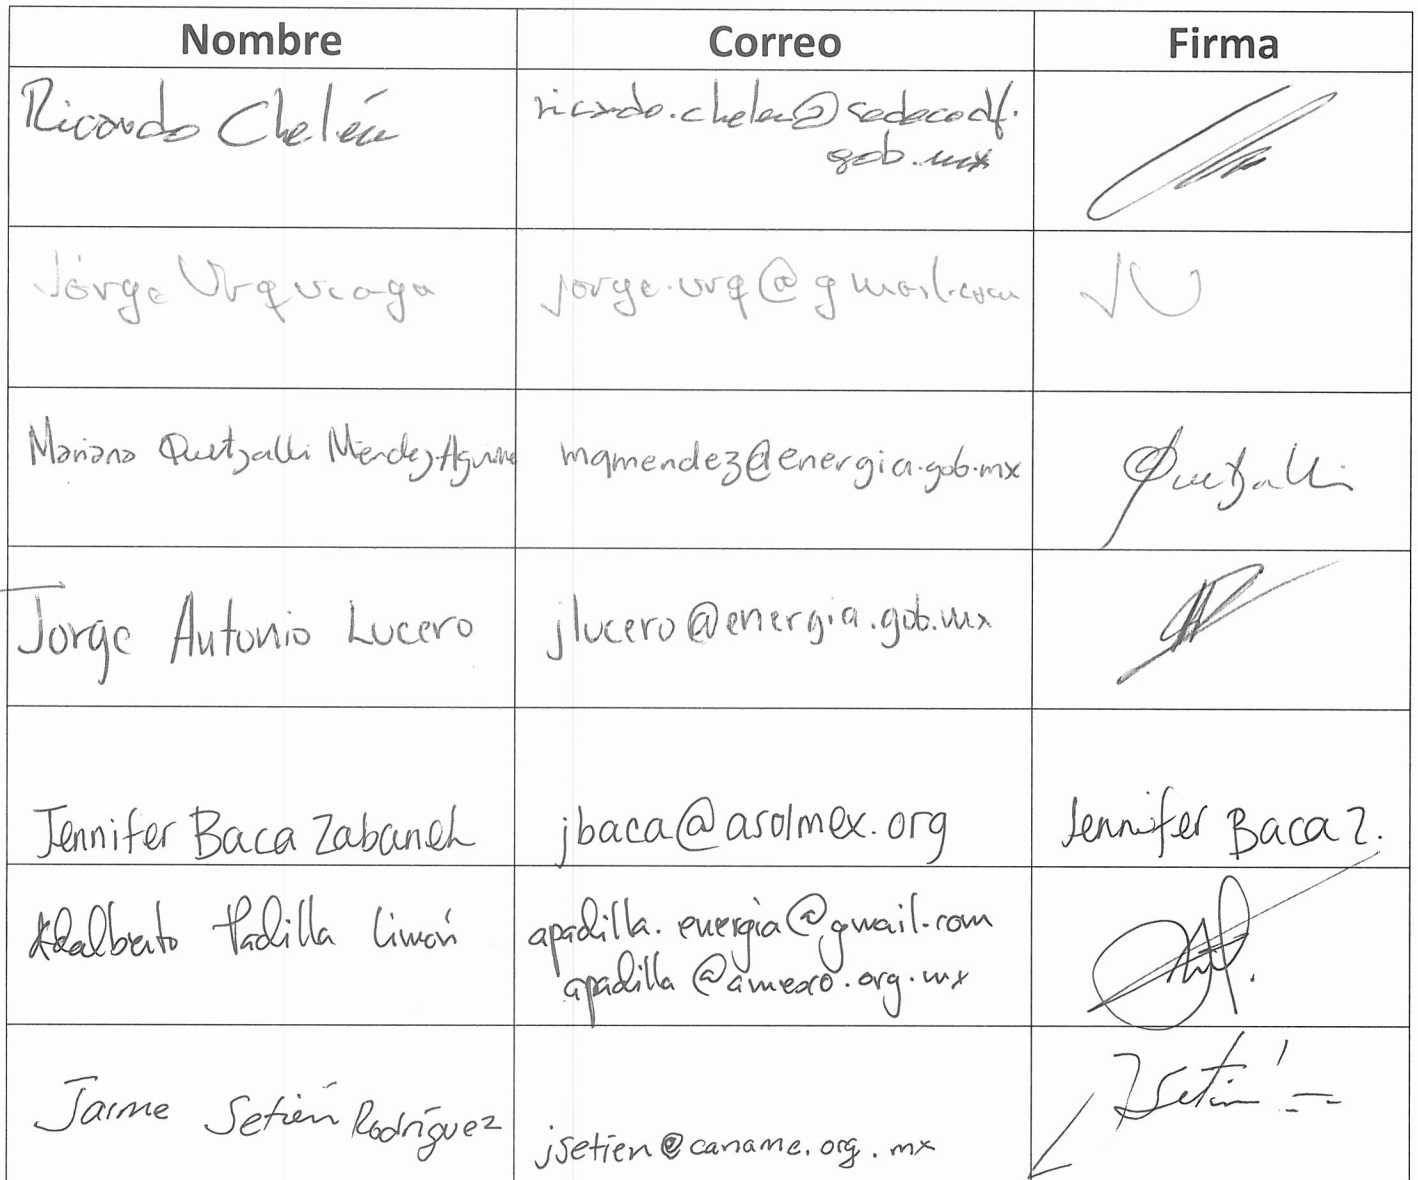 Nombre Correo Firma
Ricardo Chelén ricardo.chelen@sedecodf.
gob.mx
Jorge Urqueaga jorge.urq@gmail.com JU
Mariana Quetzalli Mendez Aguirre mqmendez@energia.gob.mx Quetzalli
Jorge Antonio Lucero jlucero@energia.gob.mx
Jennifer Baca Zabaneh jbaca@asolmex.org Jennifer Baca Z.
Adalberto Padilla Limón apadilla.energia@gmail.com
apadilla@amexo.org.mx
Jaime Setién Rodríguez jsetien@caname.org.mx JSetién